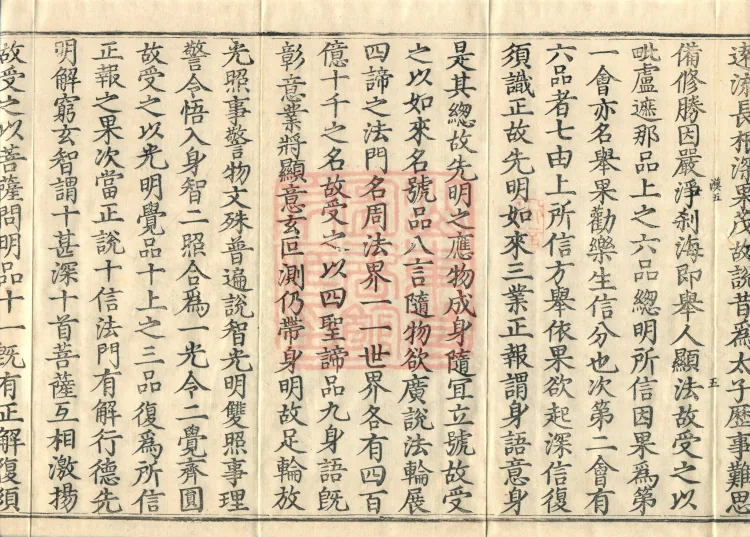 遠流長根深果茂故說昔爲太子歷事難思
備修勝因嚴淨刹海即舉人顯法故受之以
毗盧遮那品上之六品總明所信因果爲第
一會亦名舉果勸樂生信分也次第二會有
六品者七由上所信方舉依果欲起深信復
須識正故先明如來三業正報謂身語意身
是其總故先明之應物成身隨宜立號故受
之以如來名號品八言隨物欲廣說法輪展
四諦之法門名周法界一一世界各有四百
億十千之名故受之以四聖諦品九身語旣
彰意業將顯意玄叵測仍帶身明故足輪放
光照事警物文殊普遍說智光明雙照事理
警令悟入身智二照合爲一光令二覺齊圓
故受之以光明覺品十上之三品復爲所信
正報之果次當正說十信法門有解行德先
明解窮玄智謂十甚深十首菩薩互相激揚
故受之以菩薩問明品十一旣有正解復須
漠五
五